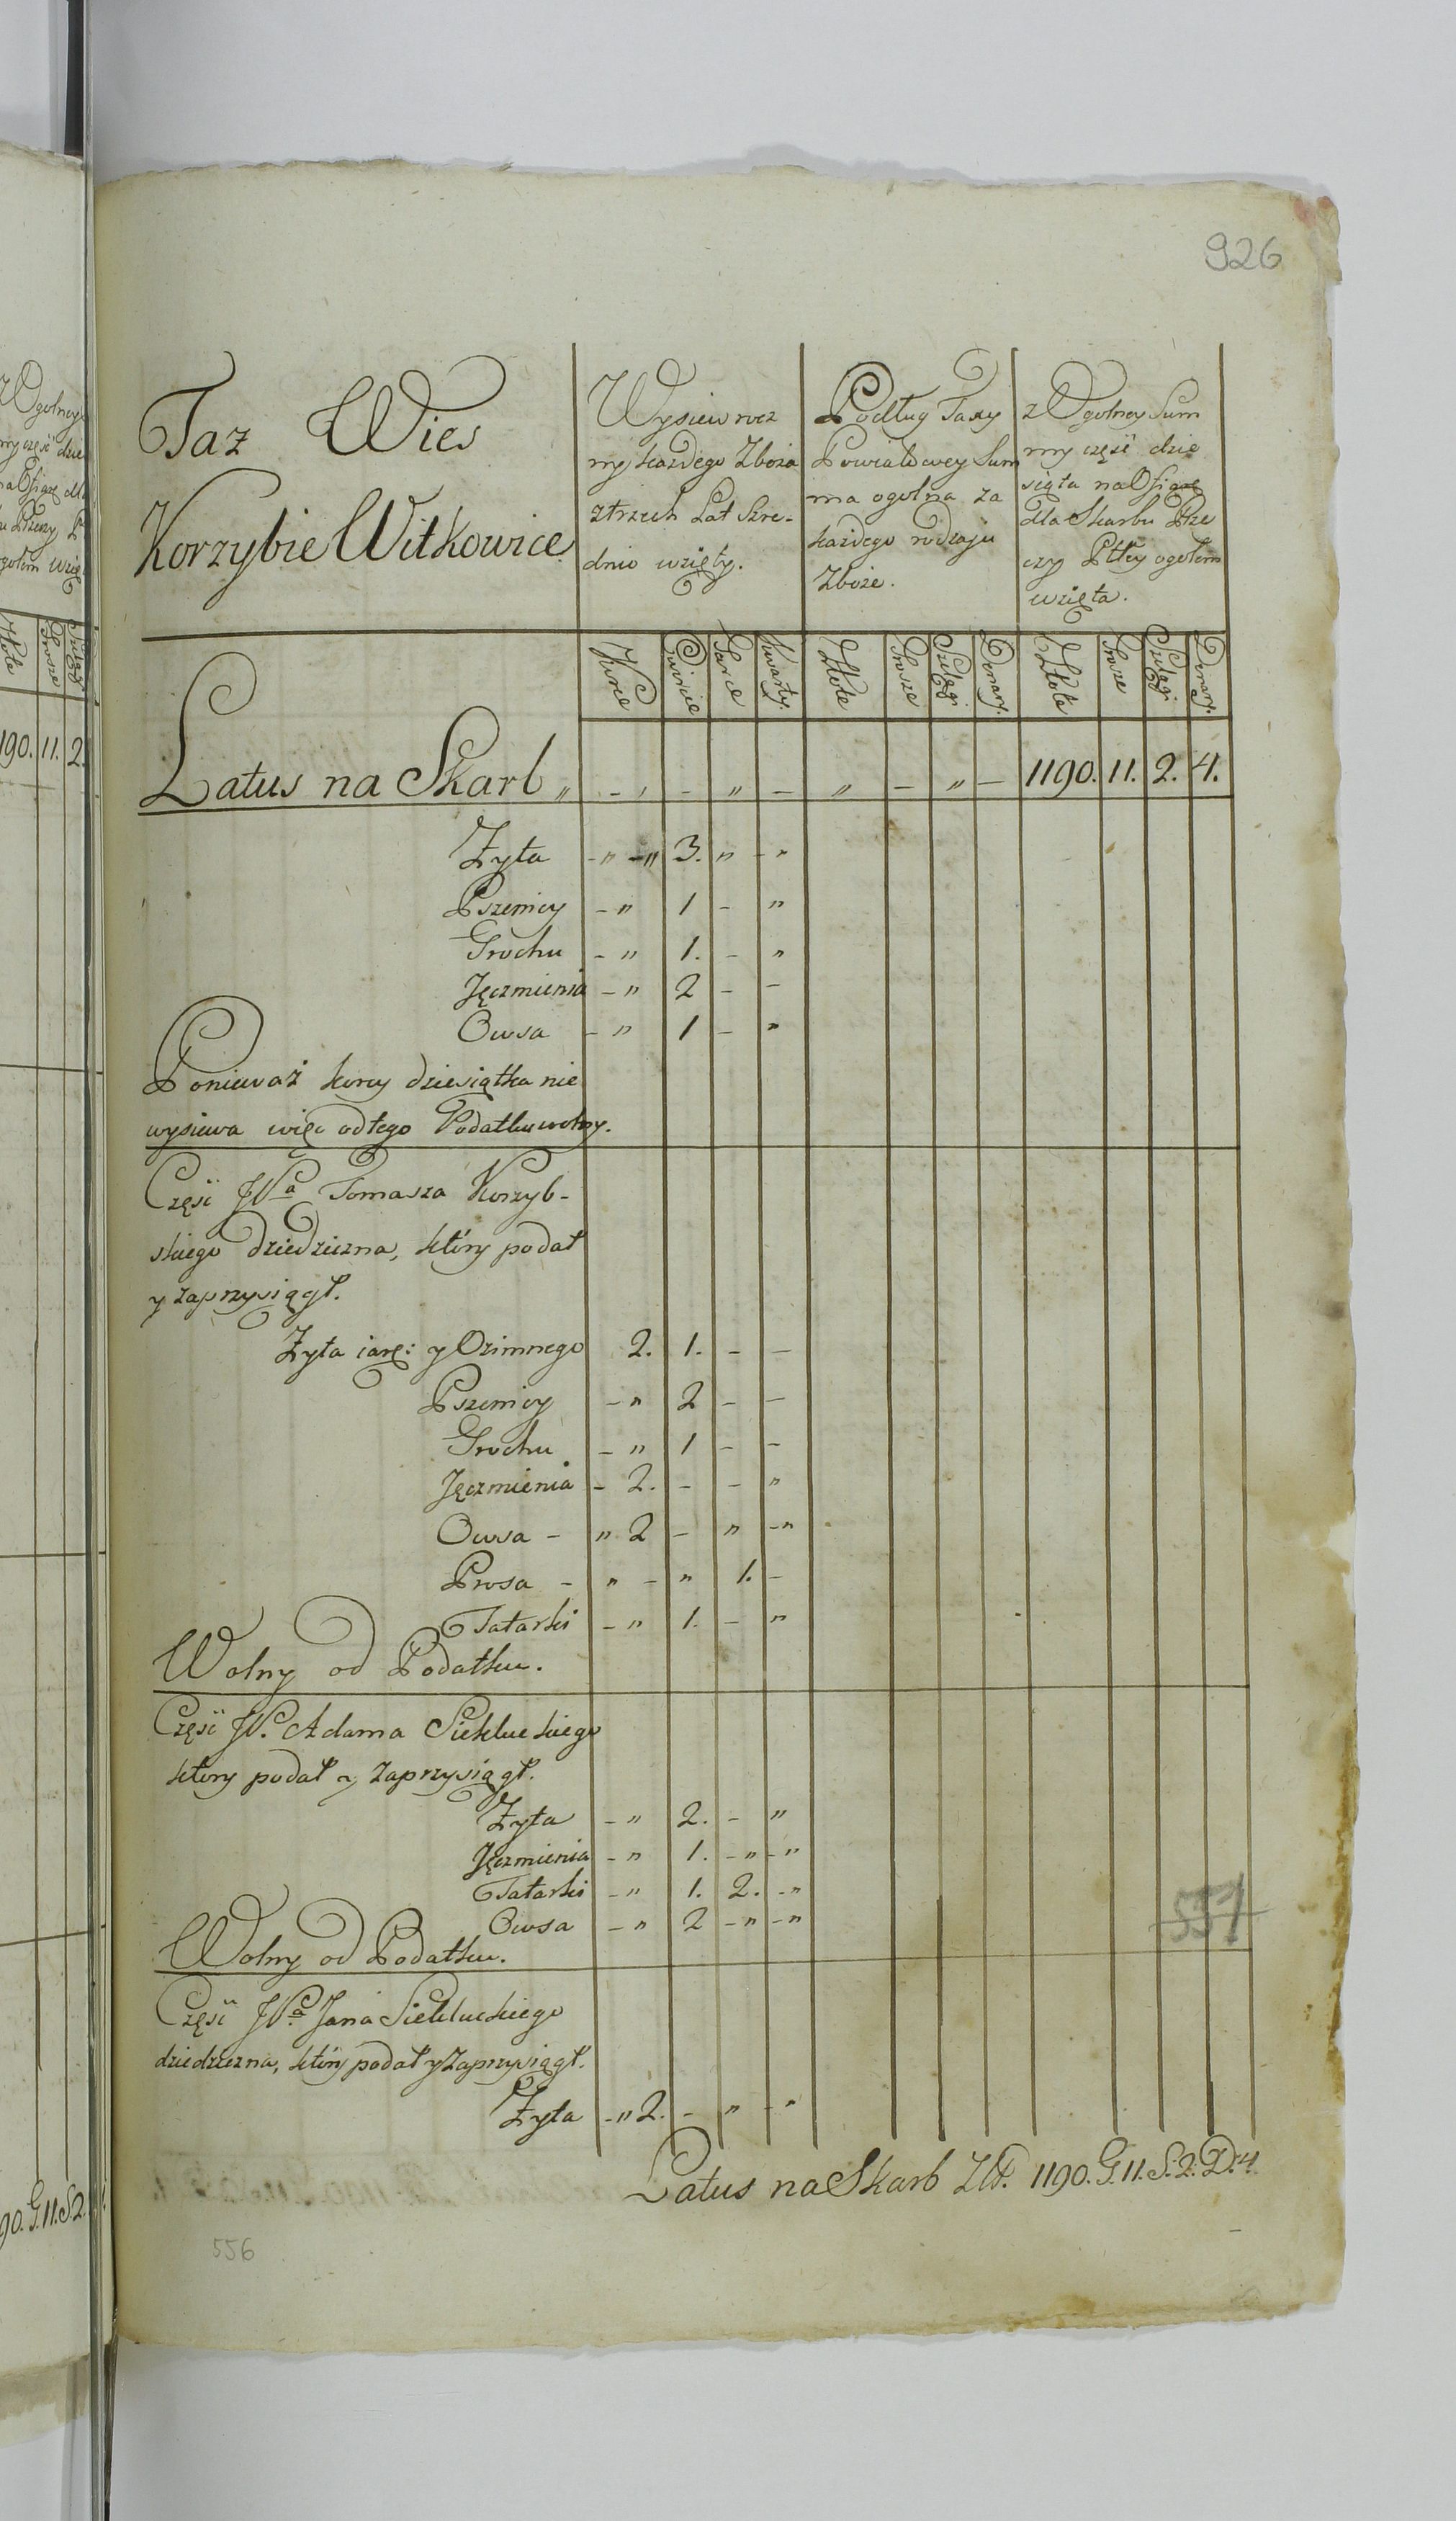 926
Taz Wies
Korzybie Witkowice
Wysiew rocz
ny każdego Zboża
ztrzech Lat Szre-
dnio wzięty.
Podług Taxy
Powiatowey Sum
ma ogolna za
każdego rodzaju
Zboże.
z Ogolney Sum
my częsć dzie
siąta na Ofiarę
dla Skarbu Rze
czy Pltey ogołem
wzięta.
Korce Cwircie Garce Kwarty. Złote Grosze Szelągi Denary. Złote Grosze Szelągi Denary.
Latus na Skarb „ - „ - „ - „ - „ - 1190. 11. 2. 4.
Żyta -„ -„ 3. „ - „
Pszenicy - „ 1 - „
Grochu - „ 1. - „
Jęczmienia - „ 2 - -
Owsa - „ 1 - „
Ponieważ korcy dziesiątka nie
wysiewa więc odtego Podatku wolny.
Częsć JPa Tomasza Korzyb-
skiego dziedziczna, ktory podał
y zaprzysiągł.
Żyta iarę: y Ozimnego 2. 1. - -
Pszenicy - „ 2 - -
Grochu - „ 1 - -
Jęczmienia - 2. - - „
Owsa - „ 2 - „ -„
Prosa - „ - „ 1. -
Tatarki - „ 1. - „
Wolny od Podatku.
Częsć JP. Adama Siekluckiego
ktory podał y zaprzysiągł.
Żyta - „ 2. - „
Jęczmienia - „ 1. -„ -„
Tatarki - „ 1. 2. -„
Owsa - „ 2 -„ -„
557
Wolny od Podatku.
Częsć JPa Jana Siekluckiego
dziedziczna, ktory podał y Zaprzysiągł.
Żyta -„ 2. - „ - „
Latus na Skarb Złł. 1190. G. 11. S. 2. D. 4
556